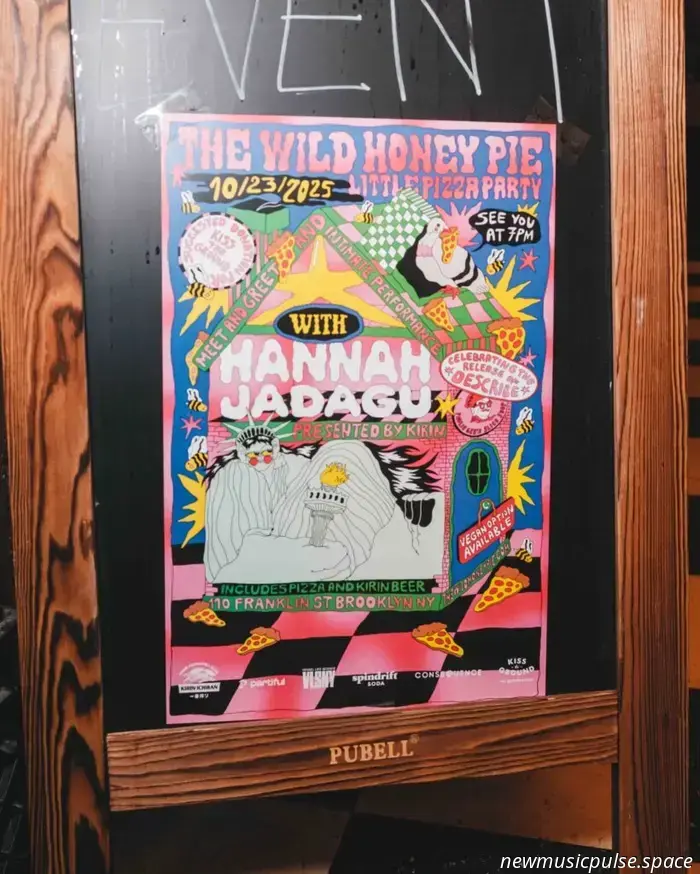 EVENT
THE WILD HONEY PIE
10/23/2025
LITTLE PIZZA PARTY
SEE YOU
AT 7PM
SUGGESTED DONATION
KISS
THE
GROUND
MEET AND GREET AND INTIMATE PERFORMANCE
WITH
HANNAH
JADAGU
CELEBRATING THE
RELEASE OF
DESCRIBE
PRESENTED BY KIRIN
VEGAN OPTION
AVAILABLE
INCLUDES PIZZA AND KIRIN BEER
110 FRANKLIN ST BROOKLYN NY
KIRIN ICHIBAN
partiful
VLSKY
spindrift
SODA
CONSEQUENCE
KISS
GROUND
PUBELL
newmusicpulse.space